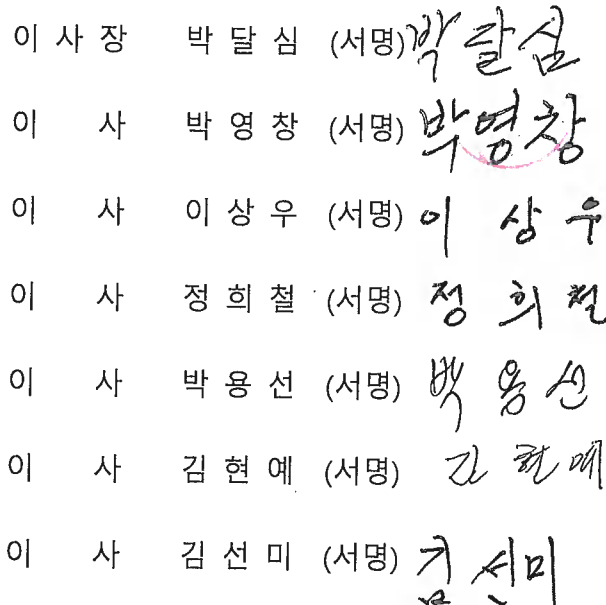 이 사 장 박 달 심 (서명) 박달심
이 사 박 영 창 (서명) 박영창
이 사 이 상 우 (서명) 이 상 우
이 사 정 희 철 (서명) 정 희 철
이 사 박 용 선 (서명) 박 용 선
이 사 김 현 예 (서명) 김 현 예
이 사 김 선 미 (서명) 김 선미